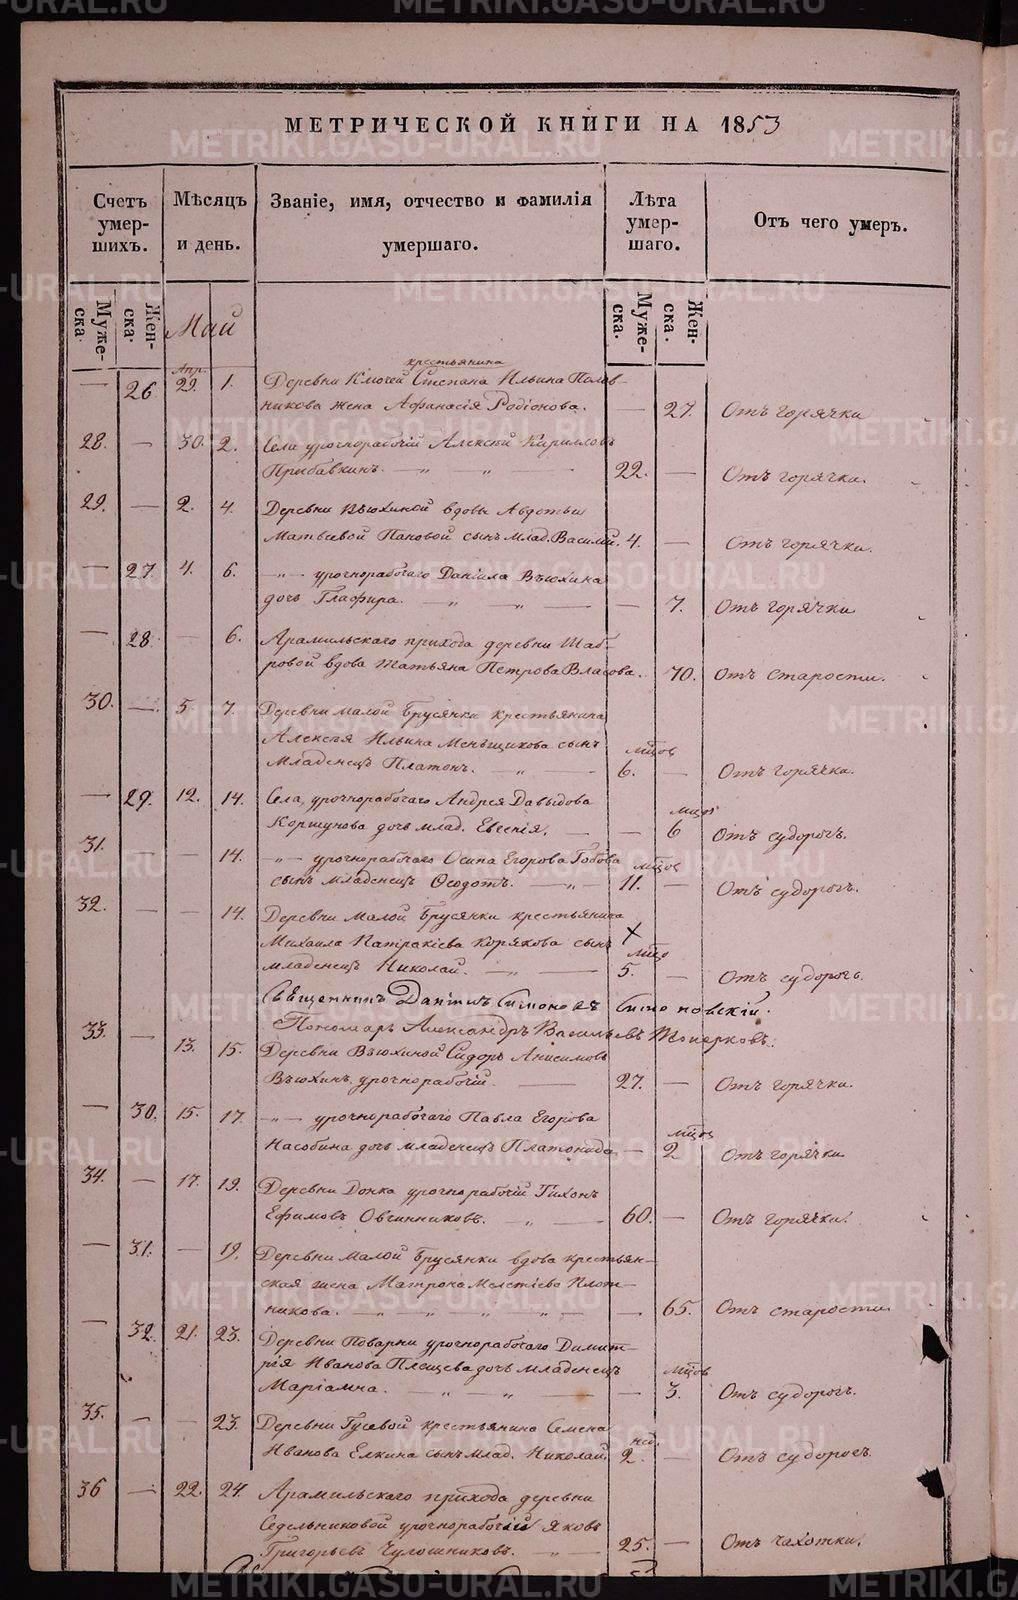 МЕТРИЧЕСКОЙ КНИГИ НА 1853
Счетъ умер-шихъ. Мѣсяцъ и день. Званіе, имя, отчество и фамилія умершаго. Лѣта умер-шаго. Отъ чего умеръ.
Муже-ска. Жен-ска. Май Муже-ска. Жен-ска.
крестьянина
Апр.
— 26 29. 1. Деревни Ключей Степана Ильина Полов-
никова жена Афанасія Родіонова. — 27. Отъ горячки
28. — 30. 2. Села урочнорабочій Алексѣй Кирилловъ
Прибавкинъ. — „ — „ — 22. — Отъ горячки.
29. — 2. 4. Деревни Вьюхиной вдовы Авдотьи
Матвеевой Пановой сынъ млад. Василій. 4. — Отъ горячки.
— 27. 4. 6. — „ — урочнорабочаго Даніила Вьюхина
дочь Глафира. — „ — „ — — 7. Отъ горячки
— 28. — 6. Арамильскаго прихода деревни Шаб-
ровой вдова Татьяна Петрова Власова. 70. Отъ старости.
30. — 5. 7. Деревни Малой Брусянки крестьянина
Алексѣя Ильина Меньщикова сынъ
Младенецъ Платонъ. — „ — мцов 6. — Отъ горячки.
— 29. 12. 14. Села, урочнорабочаго Андрея Давыдова
Коршунова дочь млад. Евгенія. — — мцов 6 Отъ судорогъ.
31. — — 14. — „ — урочнорабочаго Осипа Егорова Гобова
сынъ младенецъ Ѳеодотъ. — „ — мцов 11. — Отъ судорогъ.
32. — — 14. Деревни Малой Брусянки крестьянина
Михаила Патракіева Корякова сынъ х
младенецъ Николай. — „ — мцо 5. — Отъ судорогъ.
Священникъ Даніилъ Симоновъ
Пономарь Александръ Васильевъ Топорковъ.
33. — 13. 15. Деревни Вьюхиной Сидоръ Анисимовъ
Вьюхинъ урочнорабочій. — 27. — Отъ горячки.
— 30. 15. 17. — „ — урочнорабочаго Павла Егорова
Насобина дочь младенецъ Платонида. — мцов 2 Отъ горячки
34. — 17. 19. Деревни Донка урочнорабочій Тихонъ
Ефимовъ Овчинниковъ. — „ — 60. — Отъ горячки.
— 31. — 19. Деревни Малой Брусянки вдова крестьян-
ская жена Матрона Мелетіева Плот-
никова. — „ — „ — „ — — 65. Отъ старости.
— 32. 21. 23. Деревни Поварни урочнорабочаго Димит-
рія Иванова Плещева дочь младенецъ
Маріамна. „ — „ — — мцов 3. Отъ судорогъ.
35. — — 23. Деревни Гусевой крестьянина Семена
Иванова Елкина сынъ млад. Николай нед. 2. — Отъ судорогъ.
36 — 22. 24. Арамильскаго прихода деревни
Седельниковой урочнорабочій Яковъ
Григорьевъ Чулошниковъ. — „ — 25. — Отъ чахотки.
METRIKI.GASO-URAL.RU